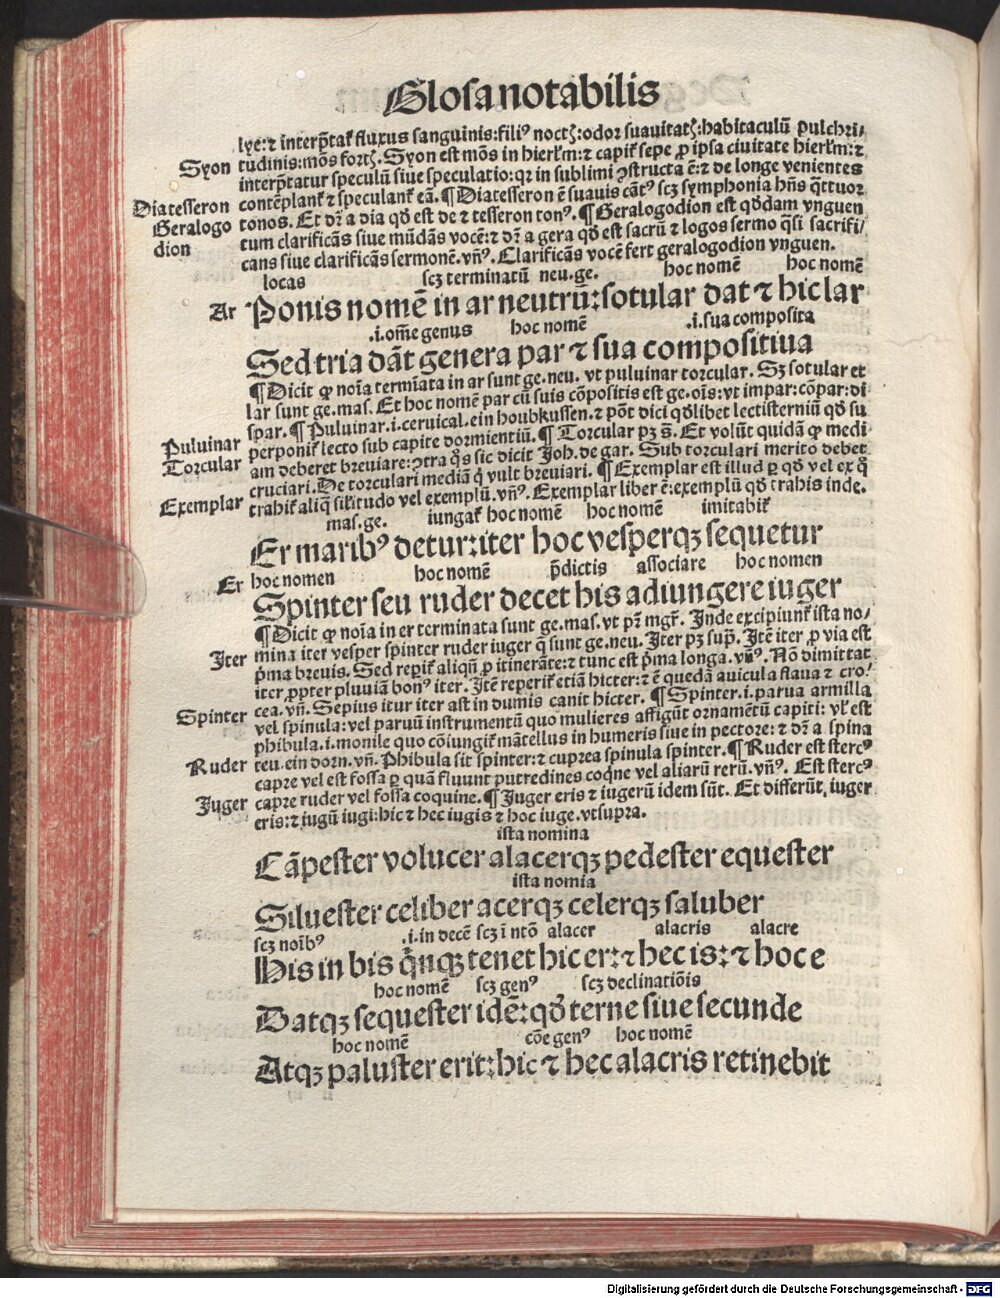 Glosa notabilis
lye:⁊ interp̄tat᷑ fluxus sanguinis:filiꝰ noctꝫ:odor suauitatꝫ:habitaculū pulchri/
Syon tudinis:mōs fortꝫ. Syon est mōs in hierłm:⁊ capit᷑ sepe ꝓ ipsa ciuitate hierłm:⁊
interp̄tatur speculū siue speculatio:qꝛ in sublimi ꝯstructa ē:⁊ de longe venientes
Diatesseron contēplant᷑ ⁊ speculant᷑ eā. ¶ Diatesseron ē suauis cātꝰ scꝫ symphonia hn̄s q̄ttuor
Geralogo tonos. Et dꝛ̄ a dia qd̄ est de ⁊ tesseron tonꝰ. ¶ Geralogodion est qd̄dam vnguen
dion tum clarificās siue mūdās vocē:⁊ dꝛ̄ a gera qd̄ est sacrū ⁊ logos sermo q̄si sacrifi/
cans siue clarificās sermonē. vn̄ꝰ. Clarificās vocē fert geralogodion vnguen.
locas scꝫ terminatū neu.ge. hoc nomē hoc nomē
Ar Ponis nomē in ar neutrū:sotular dat ⁊ hic lar
.i.om̄e genus hoc nomē .i.sua composita
Sed tria dāt genera par ⁊ sua compositiua
¶ Dicit ꝙ noīa termīata in ar sunt ge.neu. vt puluinar torcular. Sꝫ sotular et
lar sunt ge.mas. Et hoc nomē par cū suis cōpositis est ge.oīs:vt impar:cōpar:di
spar. ¶ Puluinar.i.ceruical.ein houbkussen.⁊ pōt dici qd̄libet lectisterniū qd̄ su
Puluinar perponit᷑ lecto sub capite dormientiū. ¶ Torcular pꝫ s̄. Et volūt quidā ꝙ medi
Torcular am deberet breuiare:ꝯtra q̄s sic dicit Joh. de gar. Sub torculari merito debet
cruciari. De torculari mediā q̄ vult breuiari. ¶ Exemplar est illud ꝑ qd̄ vel ex q̄
Exemplar trahit᷑ aliq̄ silitudo vel exemplū. vn̄ꝰ. Exemplar liber ē:exemplū qd̄ trahis inde.
mas.ge. iungat᷑ hoc nomē hoc nomē imitabit᷑
Er maribꝰ detur:iter hoc vesperqꝫ sequetur
Er hoc nomen hoc nomē p̄dictis associare hoc nomen
Spinter seu ruder decet his adiungere iuger
¶ Dicit ꝙ noīa in er terminata sunt ge.mas. vt pꝛ̄ mgr̄. Inde excipiunt᷑ ista no/
Iter mina iter vesper spinter ruder iuger q̄ sunt ge.neu. Iter pꝫ sup̄. Itē iter ꝓ via est
p̄ma breuis. Sed reperit᷑ aliqn̄ ꝓ itinerāte:⁊ tunc est p̄ma longa. vn̄ꝰ. Nō dimittat
iter ꝓpter pluuiam bonꝰ iter. Itē reperit᷑ etiā hicter:⁊ ē quedā auicula flaua ⁊ cro/
Spinter cea. vn̄. Sepius itur iter ast in dumis canit hicter. ¶ Spinter.i.parua armilla
vel spinula:vel paruū instrumentū quo mulieres affigūt ornamētū capiti: vl̄ est
phibula.i.monile quo cōiungit᷑ mātellus in humeris siue in pectore: ⁊ dꝛ̄ a spina
Ruder teu.ein dorn. vn̄. Phibula sit spinter:⁊ cuprea spinula spinter. ¶ Ruder est stercꝰ
capre vel est fossa ꝑ quā fluunt putredines coq̄ne vel aliarū rerū. vn̄ꝰ. Est stercꝰ
Juger capre ruder vel fossa coquine. ¶ Juger eris ⁊ iugerū idem sūt. Et differūt iuger
eris:⁊ iugū iugi:hic ⁊ hec iugis ⁊ hoc iuge.vtsupra.
ista nomina
Cāpester volucer alacerqꝫ pedester equester
ista nomia
Siluester celiber acerqꝫ celerqꝫ saluber
scꝫ noībꝰ .i.in decē scꝫ ī ntō alacer alacris alacre
His in bis q̄nqꝫ tenet hic er:⁊ hec is:⁊ hoc e
hoc nomē scꝫ genꝰ scꝫ declinatiōis
Datqꝫ sequester idē:qd̄ terne siue secunde
hoc nomē cōe genꝰ hoc nomē
Atqꝫ paluster erit:hic ⁊ hec alacris retinebit
Digitalisierung gefördert durch die Deutsche Forschungsgemeinschaft - DFG